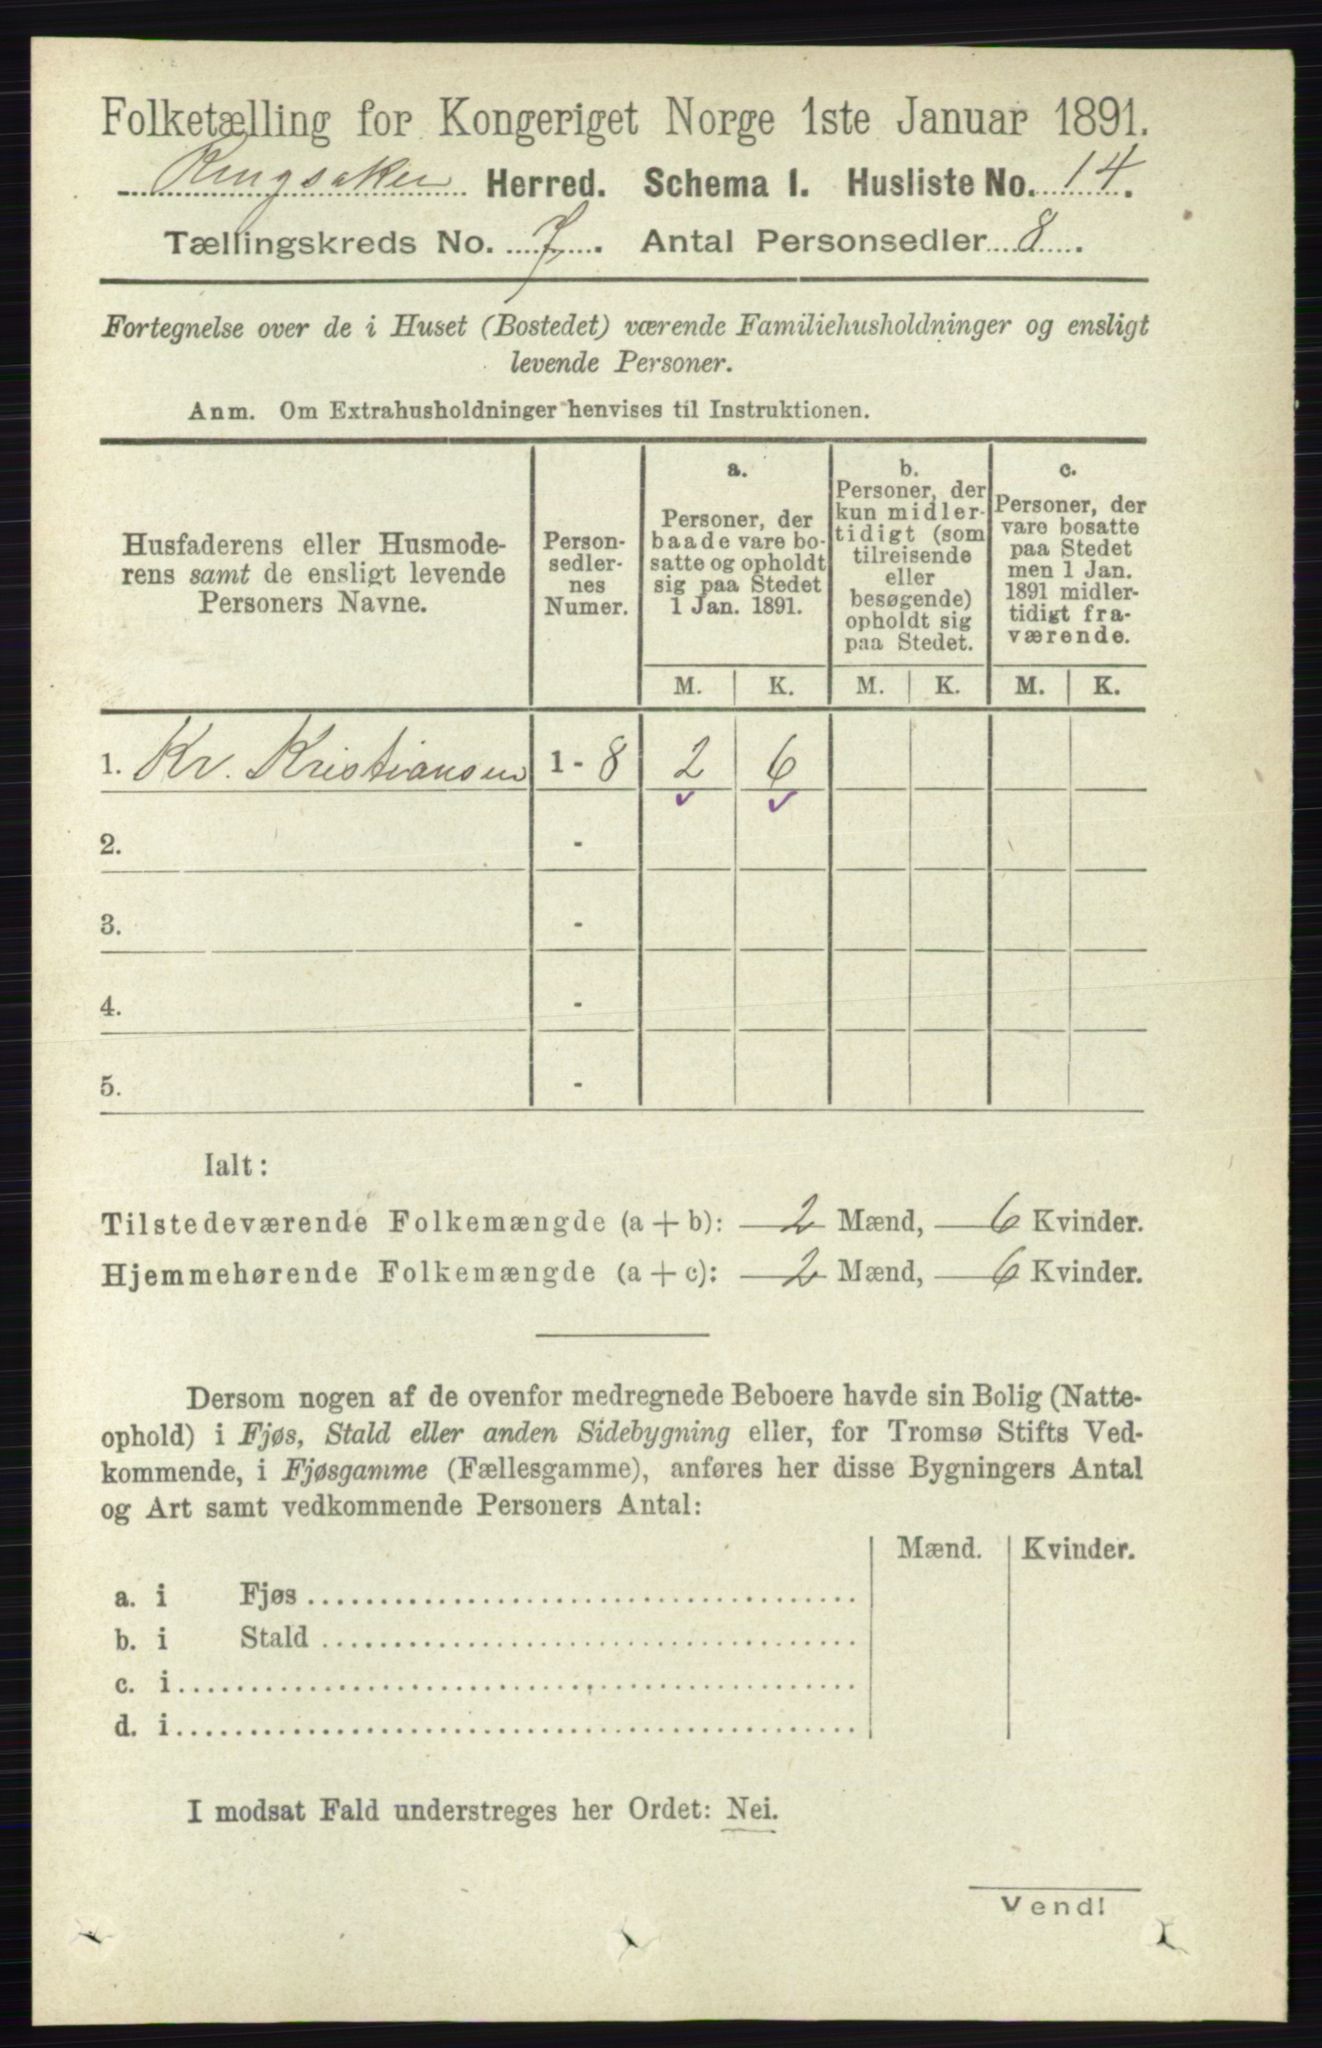 Folketælling for Kongeriget Norge 1ste Januar 1891.
Ringsaker Herred. Schema 1. Husliste No. 14.
Tællingskreds No. 7. Antal Personsedler 8.
Fortegnelse over de i Huset (Bostedet) værende Familiehusholdninger og ensligt
levende Personer.
Anm. Om Extrahusholdninger henvises til Instruktionen.
Husfaderens eller Husmode-
rens samt de ensligt levende
Personers Navne.
Person-
sedler-
nes
Numer.
a.
Personer, der
baade vare bo-
satte og opholdt
sig paa Stedet
1 Jan. 1891.
b.
Personer, der
kun midler-
tidigt (som
tilreisende
eller
besøgende)
opholdt sig
paa Stedet.
c.
Personer, der
vare bosatte
paa Stedet
men 1 Jan.
1891 midler-
tidigt fra-
værende.
M. K. M. K. M. K.
1. Kr. Kristiansen 1 - 8 2 6
2. -
3. -
4. -
5. -
Ialt:
Tilstedeværende Folkemængde (a + b): 2 Mænd, 6 Kvinder.
Hjemmehørende Folkemængde (a + c): 2 Mænd, 6 Kvinder.
Dersom nogen af de ovenfor medregnede Beboere havde sin Bolig (Natte-
ophold) i Fjøs, Stald eller anden Sidebygning eller, for Tromsø Stifts Ved-
kommende, i Fjøsgamme (Fællesgamme), anføres her disse Bygningers Antal
og Art samt vedkommende Personers Antal:
Mænd. Kvinder.
a. i Fjøs
b. i Stald
c. i
d. i
I modsat Fald understreges her Ordet: Nei.
Vend!